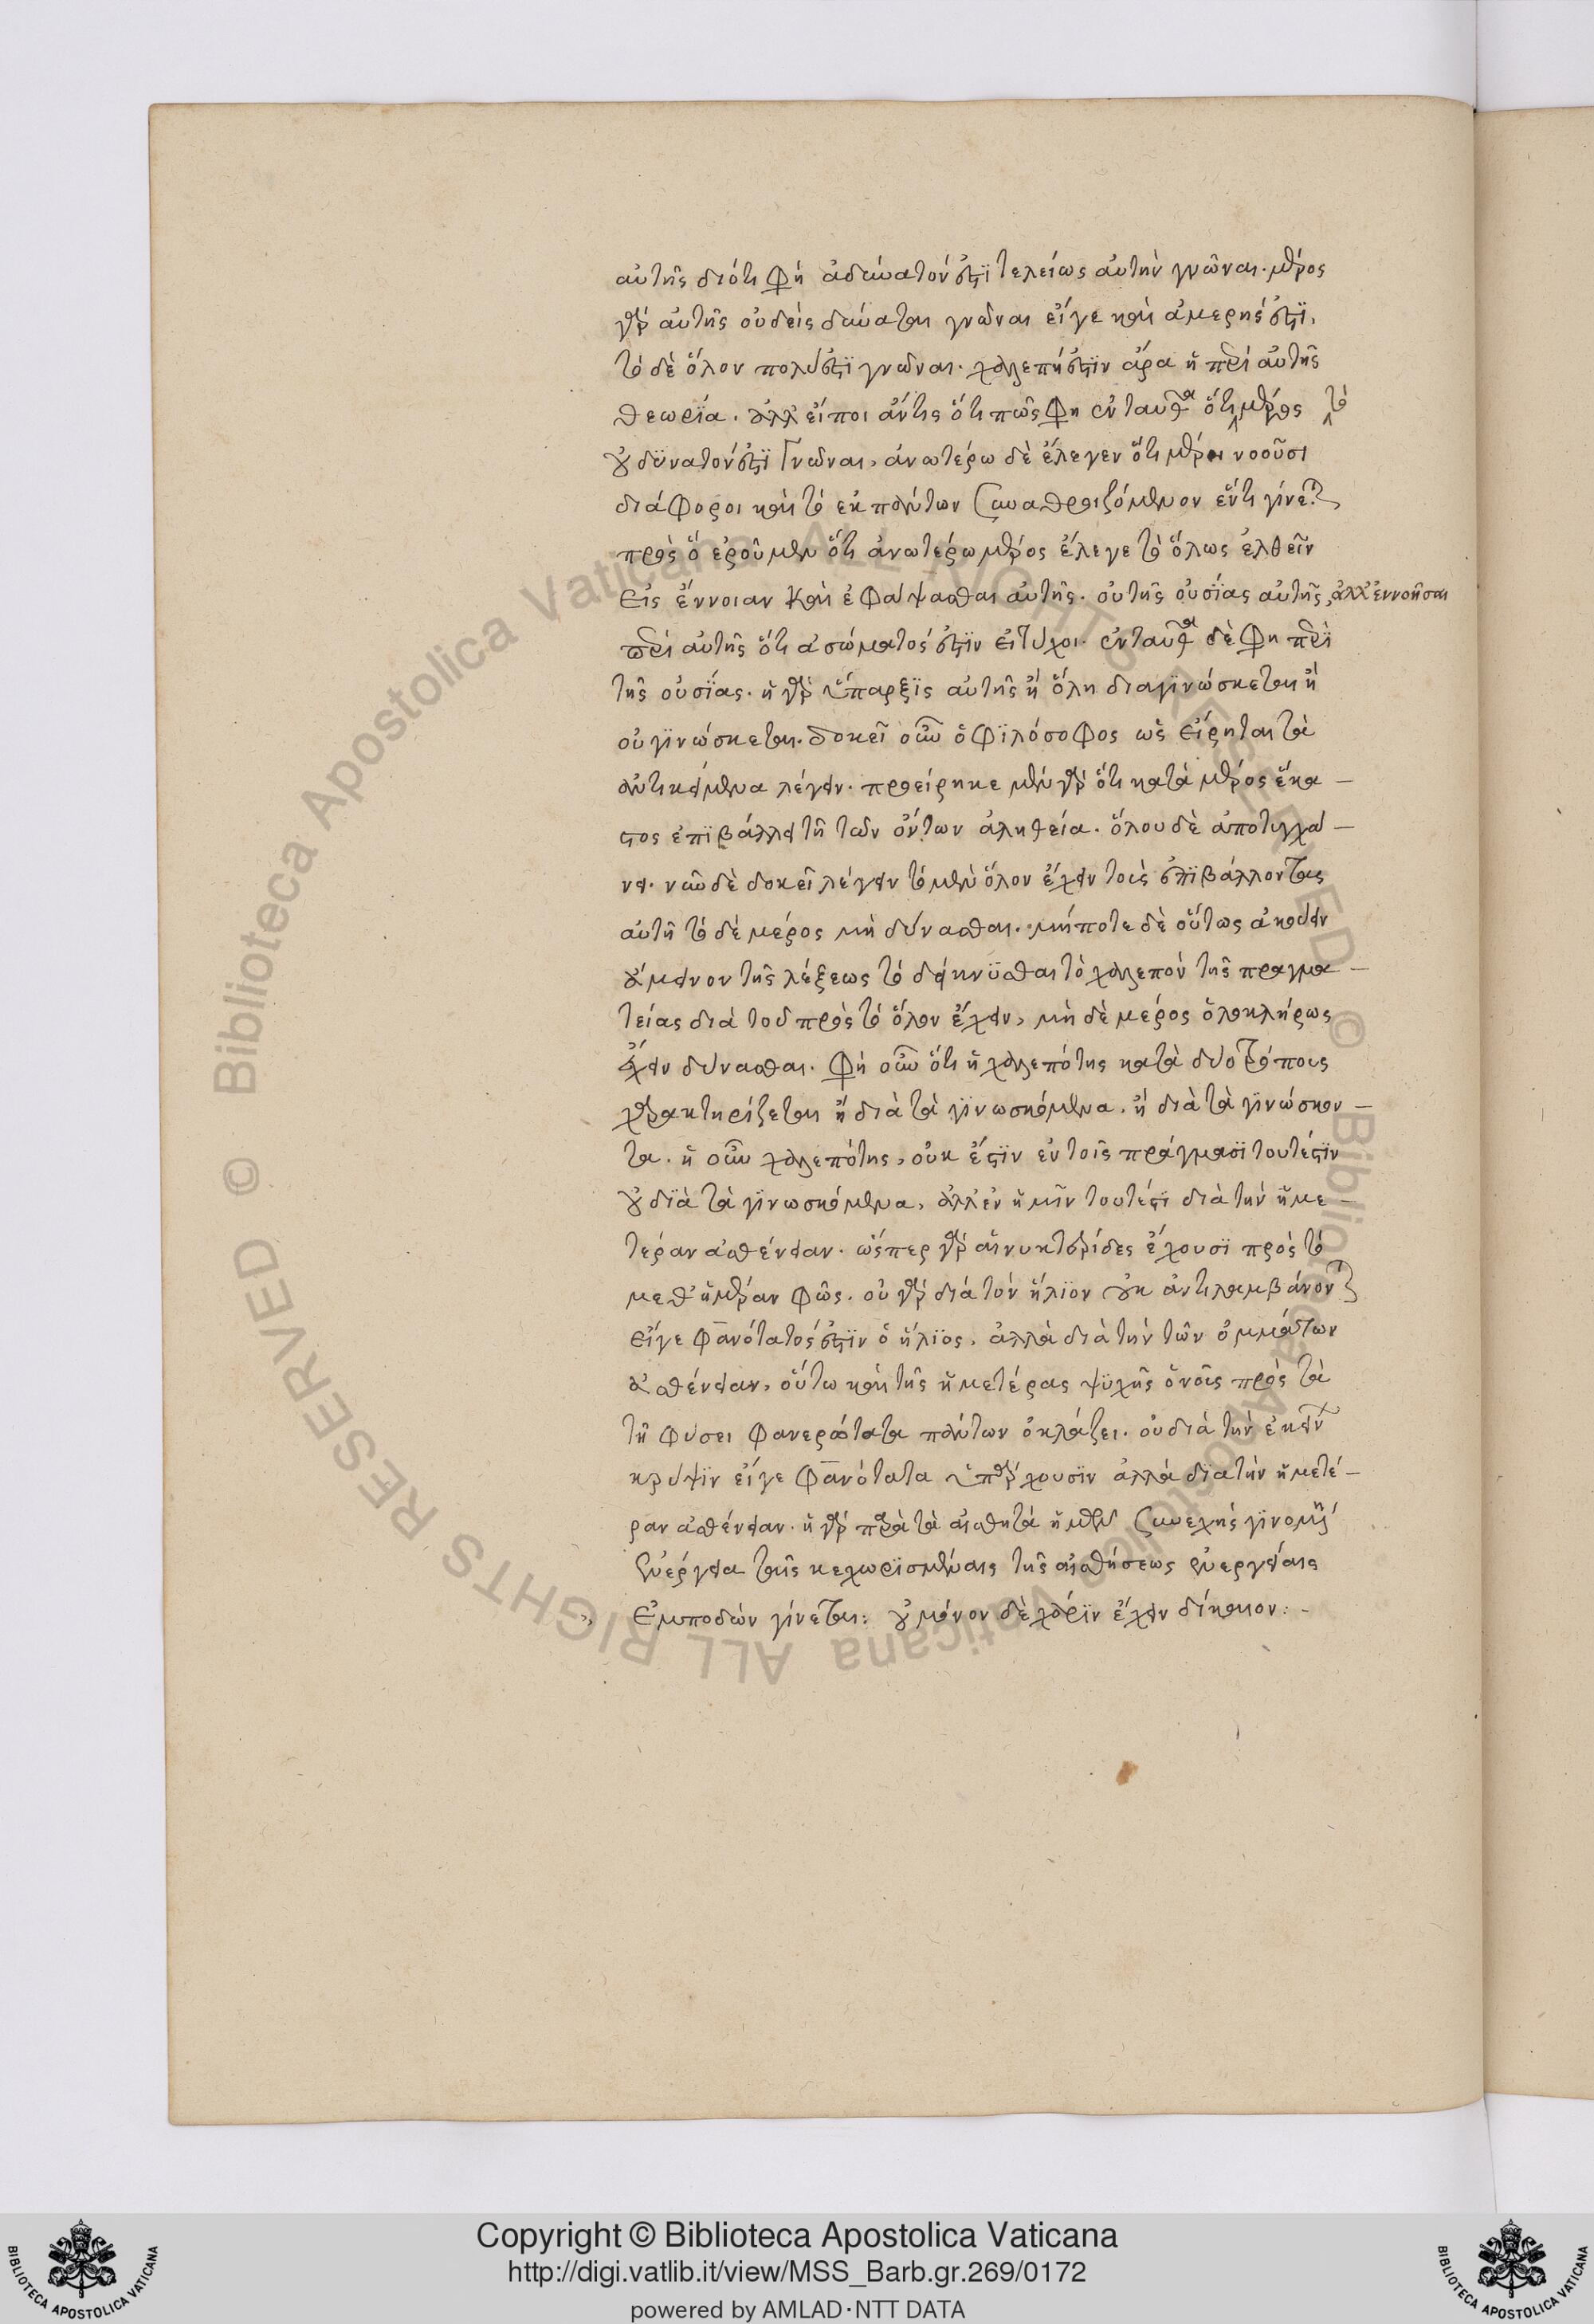 αὐτῆς διότι φὴ ἀδύνατόν ἐστϊ τελείως αὐτὴν γνῶναι. μέρος
γὰρ αὐτῆς οὐδεὶς δύναται γνῶναι εἴγε καὶ ἀμερής ἐστϊ.
τὸ δὲ ὅλον πολύ ἐστϊ γνῶναι. χαλεπή ἐστϊν ἄρα ἡ περὶ αὐτῆς
θεωρΐα. ἀλλ' εἴποι ἄν τις ὅτι πῶς φη ἐνταῦθα ὅτι μέρος τὸ
οὐ δϋνατόν ἐστϊ γνῶναι, ἀνωτέρω δὲ ἔλεγεν ὅτι μέρη νοοῦσι
διάφοροι καὶ τὸ εκ πάντων συναθροιζόμενον ἕν τι γίνεται
πρὸς ὃ ἐροῦμεν ὅτι ἀνωτέρω μέρος ἔλεγε τὸ ὅλως ἐλθεῖν
εἰς ἔννοιαν καὶ ἐφάψασθαι αὐτῆς. οὐ τῆς οὐσΐας αὐτῆς, ἀλλ' ἐννοῆσαι
περὶ αὐτῆς ὅτι ἀσώματός ἐστϊν εἰ τύχοι. ἐνταῦθα δὲ φη περὶ
τῆς οὐσΐας. ἡ γὰρ ὕπαρξϊς αὐτῆς ἢ ὅλη διαγϊνώσκεται ἢ
οὐ γϊνώσκεται. δοκεῖ οὖν ὁ φϊλόσοφος ὡς εἴρηται τὰ
ἀντικείμενα λέγειν. προείρηκε μὲν γὰρ ὅτι κατὰ μέρος ἕκα-
στος ἐπϊβάλλει τῇ τῶν ὄντων ἀληθεία. ὅλου δὲ ἀποτυγχά-
νει. νῦν δὲ δοκεῖ λέγειν τὸ μὲν ὅλον ἔχειν τοὺς ἐπϊβάλλοντας
αὐτῇ τὸ δὲ μέρος μὴ δύνασθαι. μήποτε δὲ οὕτως ἀκούειν
ἄμεινον τῆς λέξεως τὸ δείκνϋσθαι τὸ χαλεπὸν τῆς πραγμα-
τείας διὰ τοῦ πρὸς τὸ ὅλον ἔχειν, μὴ δὲ μέρος ὁλοκλήρως
ἔχειν δύνασθαι. φὴ οὖν ὅτι ἡ χαλεπότης κατὰ δύο τρόπους
χαρακτηρίζεται ἢ διὰ τὰ γϊνωσκόμενα, ἢ διὰ τὰ γϊνώσκον-
τα. ἡ οὖν χαλεπότης, οὐκ ἔστϊν ἐν τοῖς πράγμασϊ τουτέστϊν
οὐ δϊὰ τὰ γϊνωσκόμενα, ἀλλ' ἐν ἡμῖν τουτέστϊ διὰ τὴν ἡμε-
τέραν ἀσθένειαν. ὥσπερ γὰρ αἱ νυκτερίδες ἔχουσϊ πρὸς τὸ
μεθ' ἡμέραν φῶς. οὐ γὰρ διὰ τὸν ἥλϊον οὐκ ἀντιλαμβάνονται
εἴγε φανότατός ἐστϊν ὁ ἥλϊος. ἀλλὰ διὰ τὴν τῶν ὀμμάτων
ἀσθένειαν, οὕτω καὶ τῆς ἡμετέρας ψϋχῆς ὁ νοῦς πρὸς τὰ
τῇ φύσει φανερώτατα πάντων ὀκλάζει. οὐ διὰ τὴν ἐκείνων
κρύψϊν εἴγε φανότατα ὑπάρχουσϊν ἀλλὰ δϊὰ τὴν ἡμετέ-
ραν ἀσθένειαν. ἡ γὰρ παρὰ τὰ αἰσθητὰ ἡμῶν συνεχὴς γϊνομένη
ἐνέργεια ταῖς κεχωρϊσμέναις τῆς αἰσθήσεως ἐνεργείαις
ἐμποδὼν γίνεται: οὐ μόνον δὲ χάρϊν ἔχειν δίκαιον:-
Copyright © Biblioteca Apostolica Vaticana
http://digi.vatlib.it/view/MSS_Barb.gr.269/0172
powered by AMLAD·NTT DATA